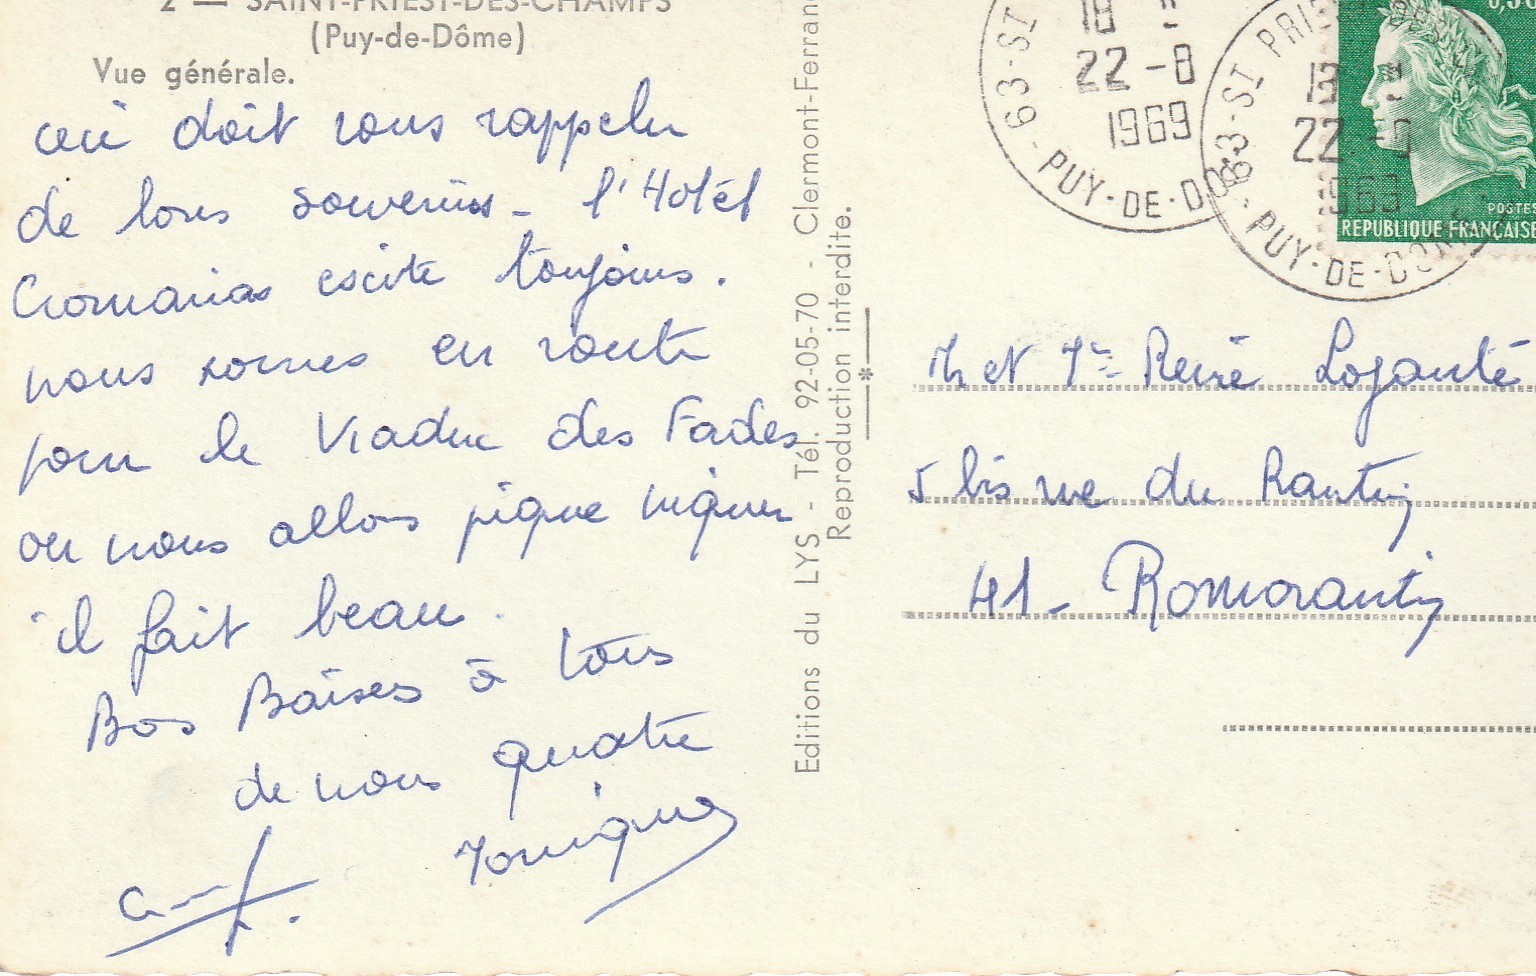 2 — SAINT-PRIEST-DES-CHAMPS
(Puy-de-Dôme)
Vue générale.
ceci doit vous rappeler
de bons souvenirs - l'Hotel
existe toujours.
nous sommes en route
pour le Viaduc des Fades
ou nous allons pique niquer
il fait beau.
Bos Baises à tous
de nous quatre
Monique
Editions du LYS - Tél. 92-05-70 - Clermont-Ferrand
Reproduction interdite.
63-ST
18
22-8
1969
PUY-DE-DOME
63-ST PRIEST DES
18
22-8
1969
PUY-DE-DOME
0,30
POSTES
REPUBLIQUE FRANÇAISE
M et Me René
5 bis rue du Rantin
41 - Romorantin